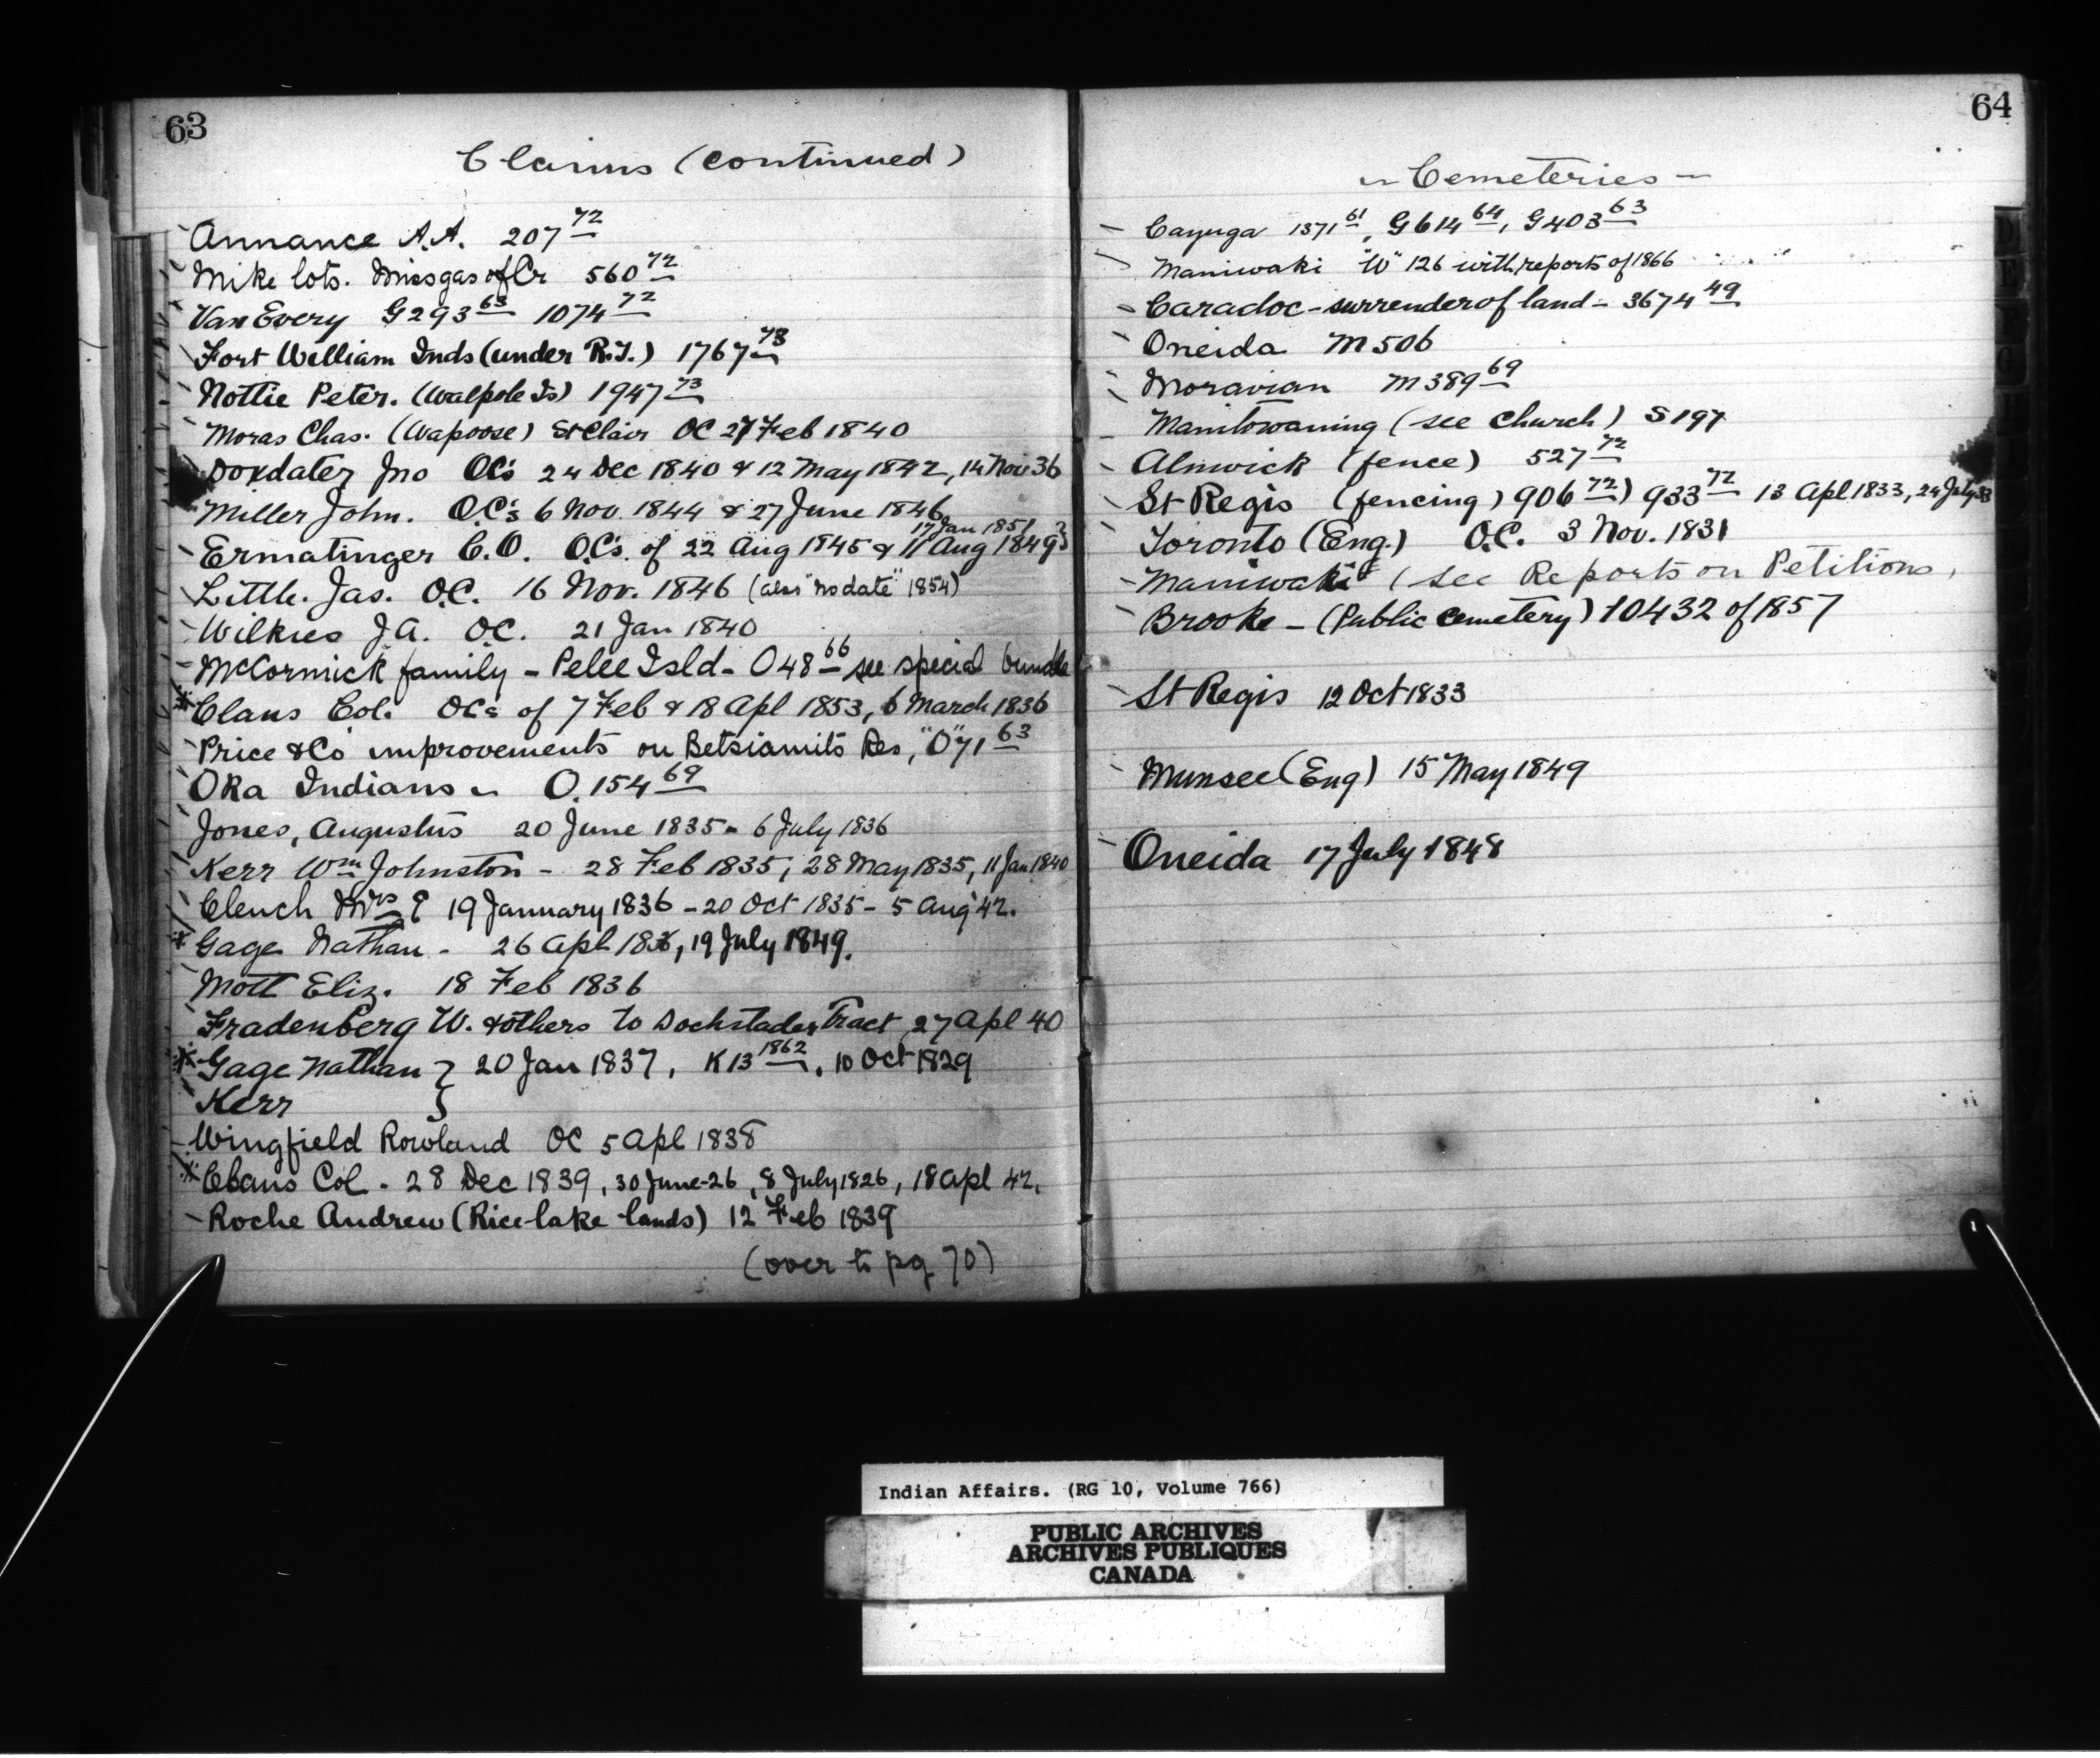 63
Claims (continued)
Annance A.A. 207 72
Mike lots. Missgas of Cr 560 72
Van Every G293 63 1074 72
Fort William Inds (under R.T.) 1767 73
Nottie Peter. (Walpole Is) 1947 73
Moras Chas. (Wapoose) St Clair OC 27 Feb 1840
Doxdater Jno OC's 24 Dec 1840 & 12 May 1842, 14 Nov 36
Miller John. O.C's 6 Nov. 1844 & 27 June 1846
17 Jan 1851
Ermatinger C.O. O.C's. of 22 Aug 1845 & 11 Aug 1849
Little. Jas. O.C. 16 Nov. 1846 (also "no date" 1854)
Wilkies J A. O.C. 21 Jan 1840
McCormick family - Pelee Isld - O48 66 see special bundle
* Claus Col. OCs of 7 Feb & 18 Apl 1853, 6 March 1836
Price & Co improvements on Betsiamits Res, "O" 71 63
Oka Indians - O. 154 69
Jones, Augustus 20 June 1835 - 6 July 1836
Kerr Wm Johnston - 28 Feb 1835, 28 May 1835, 11 Jan 1840
Clench Mrs E 19 January 1836 - 20 Oct 1835 - 5 Aug '42.
* Gage Nathan - 26 Apl 1836, 19 July 1849.
Mott Eliz. 18 Feb 1836
Fradenberg W. & others to Dochstader Tract 27 Apl 40
* Gage Nathan } 20 Jan 1837, K13 1862, 10 Oct 1829
Kerr }
Wingfield Rowland OC 5 Apl 1838
* Claus Col. - 28 Dec 1839, 30 June-26, 8 July 1826, 18 Apl 42.
Roche Andrew (Rice lake lands) 12 Feb 1839
(over to pg 70)
64
Cemeteries
Cayuga 1371 61, G614 64, G403 63
Maniwaki "W" 126 with reports of 1866
Caradoc - surrender of land - 3674 49
Oneida M506
Moravian M389 69
Manitowaning (see Church) S197
Alnwick (fence) 527 72
St Regis (fencing) 906 72) 933 72 13 Apl 1833, 24 July 33
Toronto (Eng.) O.C. 3 Nov. 1831
Maniwaki (see Reports on Petitions,
Brooke - (Public cemetery) 10432 of 1857
St Regis 12 Oct 1833
Munsee (Eng) 15 May 1849
Oneida 17 July 1848
Indian Affairs. (RG 10, Volume 766)
PUBLIC ARCHIVES
ARCHIVES PUBLIQUES
CANADA